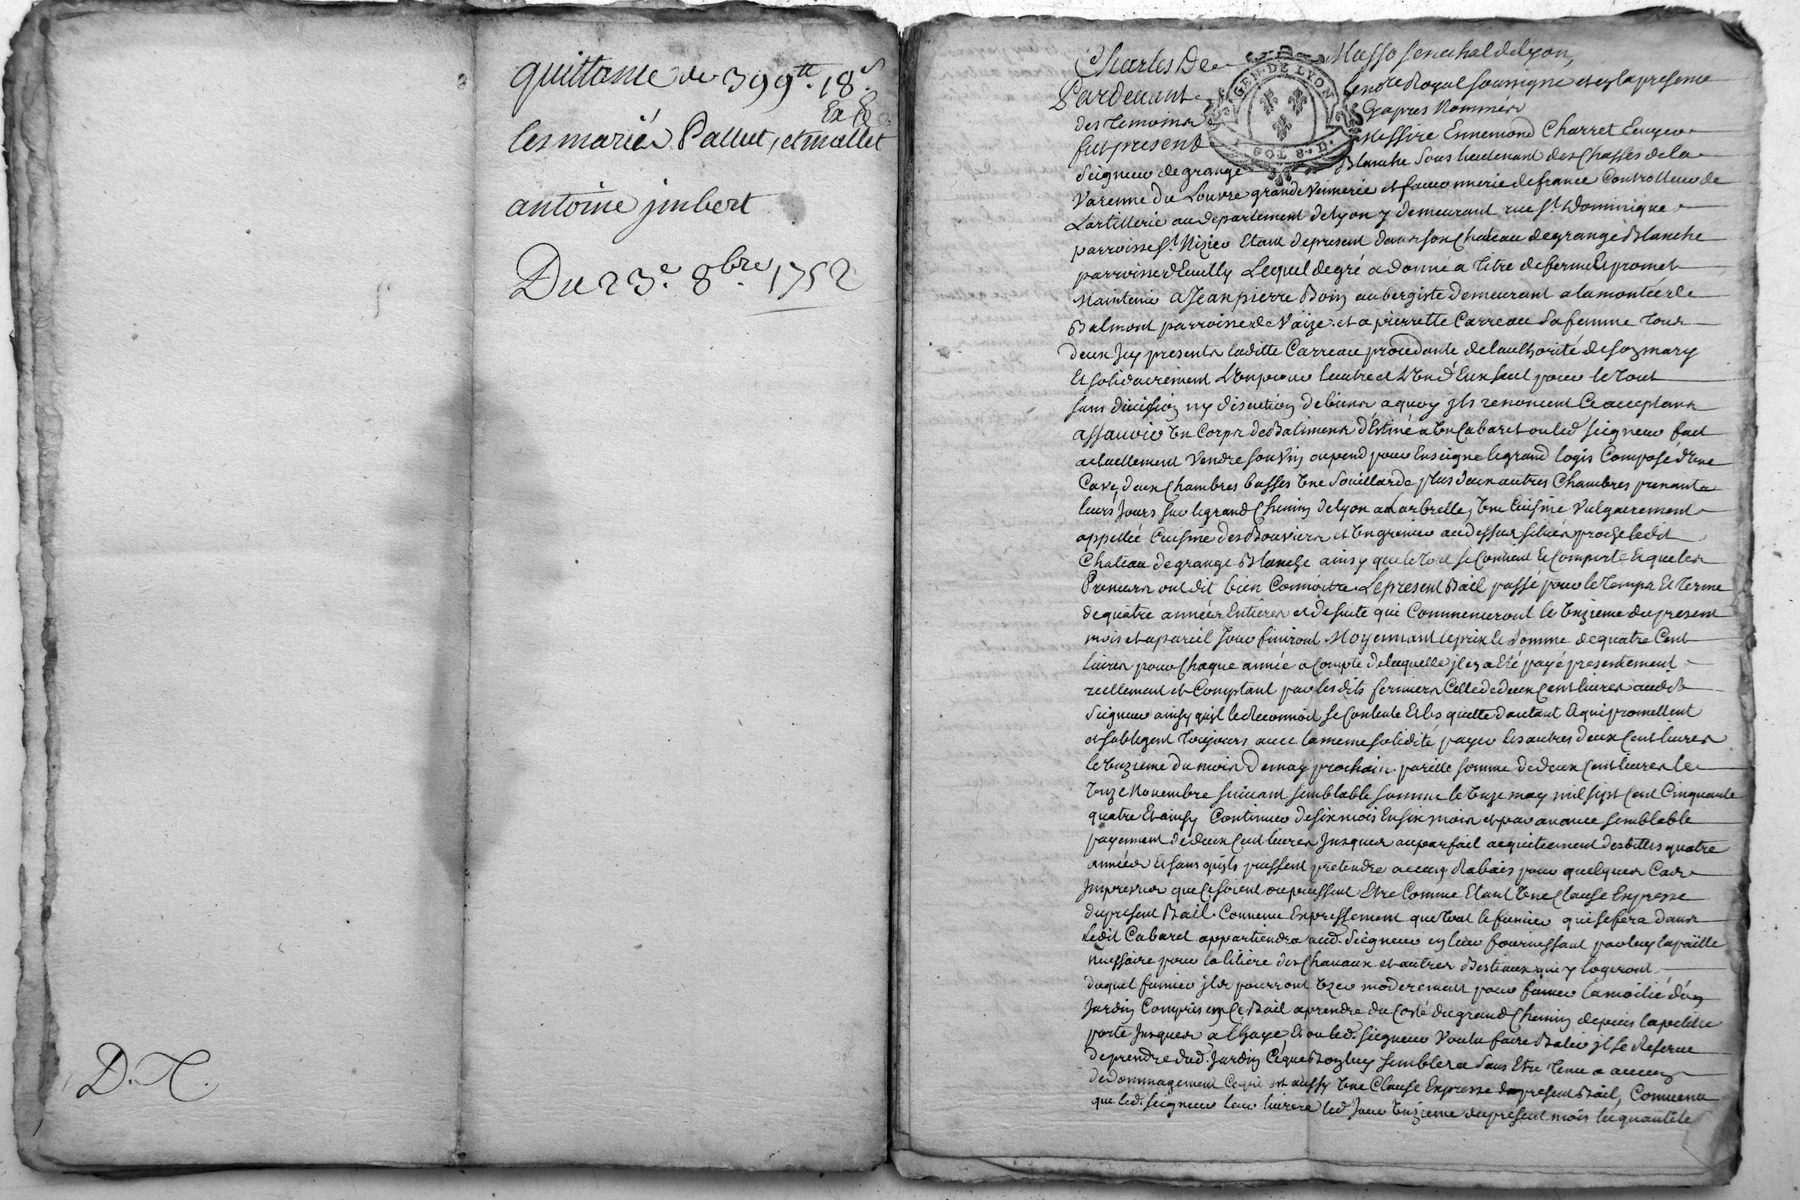 quittance de 399tt. 18s.
les mariés Pallut, et mallet
antoine jmbert
Du 23e. 8bre. 1752
D. C.
Charles De Masso senechal de lyon,
Pardevant le no.re Royal soussigné et en la presence
des temoins cy apres Nommés
fut present Messire Ennemond Charret Ecuyer
GEN. DE LYON
Seigneur de grange Blanche sous lieutenant des Chasses de la
Varenne du Louvre grande Vennerie et fauconnerie de france Controlleur de
L'artillerie au departement de lyon y demeurant rue St. Dominique
parroisse St. Nizier Etant de present dans son Chateau de grange Blanche
parroisse d'Ecully Lequel de gré a donné a titre de ferme et promet
Maintenir a Jean pierre Boin aubergiste demeurant a la montée de
Balmont parroisse de Vaize et a pierrette Carreau sa femme tous
deux Jcy presents laditte Carreau procedante de l'authorité de son mary
Et solidairement L'un pour l'autre et L'un d'Eux seul pour le tout
sans division ny discution de biens a quoy jls renoncent Ce acceptants
assavoir un Corps de Batiments destiné a un Cabaret ou led. seigneur fait
actuellement Vendre son Vin ou pend pour Enseigne le grand logis Composé d'une
Cave, deux Chambres basses une souillarde plus deux autres Chambres prenants
leurs Jours sur le grand Chemin de lyon a Larbrelle, une Cuisine Vulgairement
appellée Cuisine des Bouviers et un grenier au dessus situés proche ledit
Chateau de grange Blanche ainsy que le tout se Contient Et Comporte Et que les
Preneurs ont dit bien Connoitre Le present Bail passé pour le temps Et terme
de quatre années Entieres et de suite qui Commenceront le unzieme du present
mois et a pareil Jour finiront Moyennant le prix Et somme de quatre Cent
livres pour Chaque année a Compte de laquelle jl en a Eté payé presentement
reellement et Comptant par lesdits fermiers Celle de deux Cent livres audit
Seigneur ainsy qu'jl le Reconnoit se Contente Et les quitte d'autant Et qui promettent
et s'obligent toujours avec la meme solidité payer les autres deux Cent livres
le unzieme du mois de may prochain pareille somme de deux Cent livres le
unze Novembre suivant semblable somme le unze may mil sept Cent Cinquante
quatre Et ainsy Continuer de six mois En six mois et par avance semblable
payement de deux Cent livres Jusques au parfait acquittement desdittes quatre
années Et sans qu'jls puissent pretendre aucun Rabais pour quelques Cas
Jmprevus que Ce soient ou puissent Etre Comme Etant une Clause Expresse
du present Bail. Convenu Expressement que tout le fumier qui se fera dans
Ledit Cabaret appartiendra aud. Seigneur en leur fournissant par luy la paille
necessaire pour la litiere des Chevaux et autres Bestiaux qui y logeront
duquel fumier jls pourront uzer moderement pour fumer la moitié d'un
Jardin Compris en Ce Bail a prendre du Costé du grand Chemin depuis la petitte
porte Jusques a l'haye, Et ou led. seigneur Voulu faire Batir jl se Reserve
de prendre dud. Jardin Ce que Bon luy semblera sans Etre tenu a aucun
dedommagement Ce qui est aussy une Clause Expresse du present Bail, Convenu
que led. seigneur leur livrera led. Jour unzieme du present mois la quantité